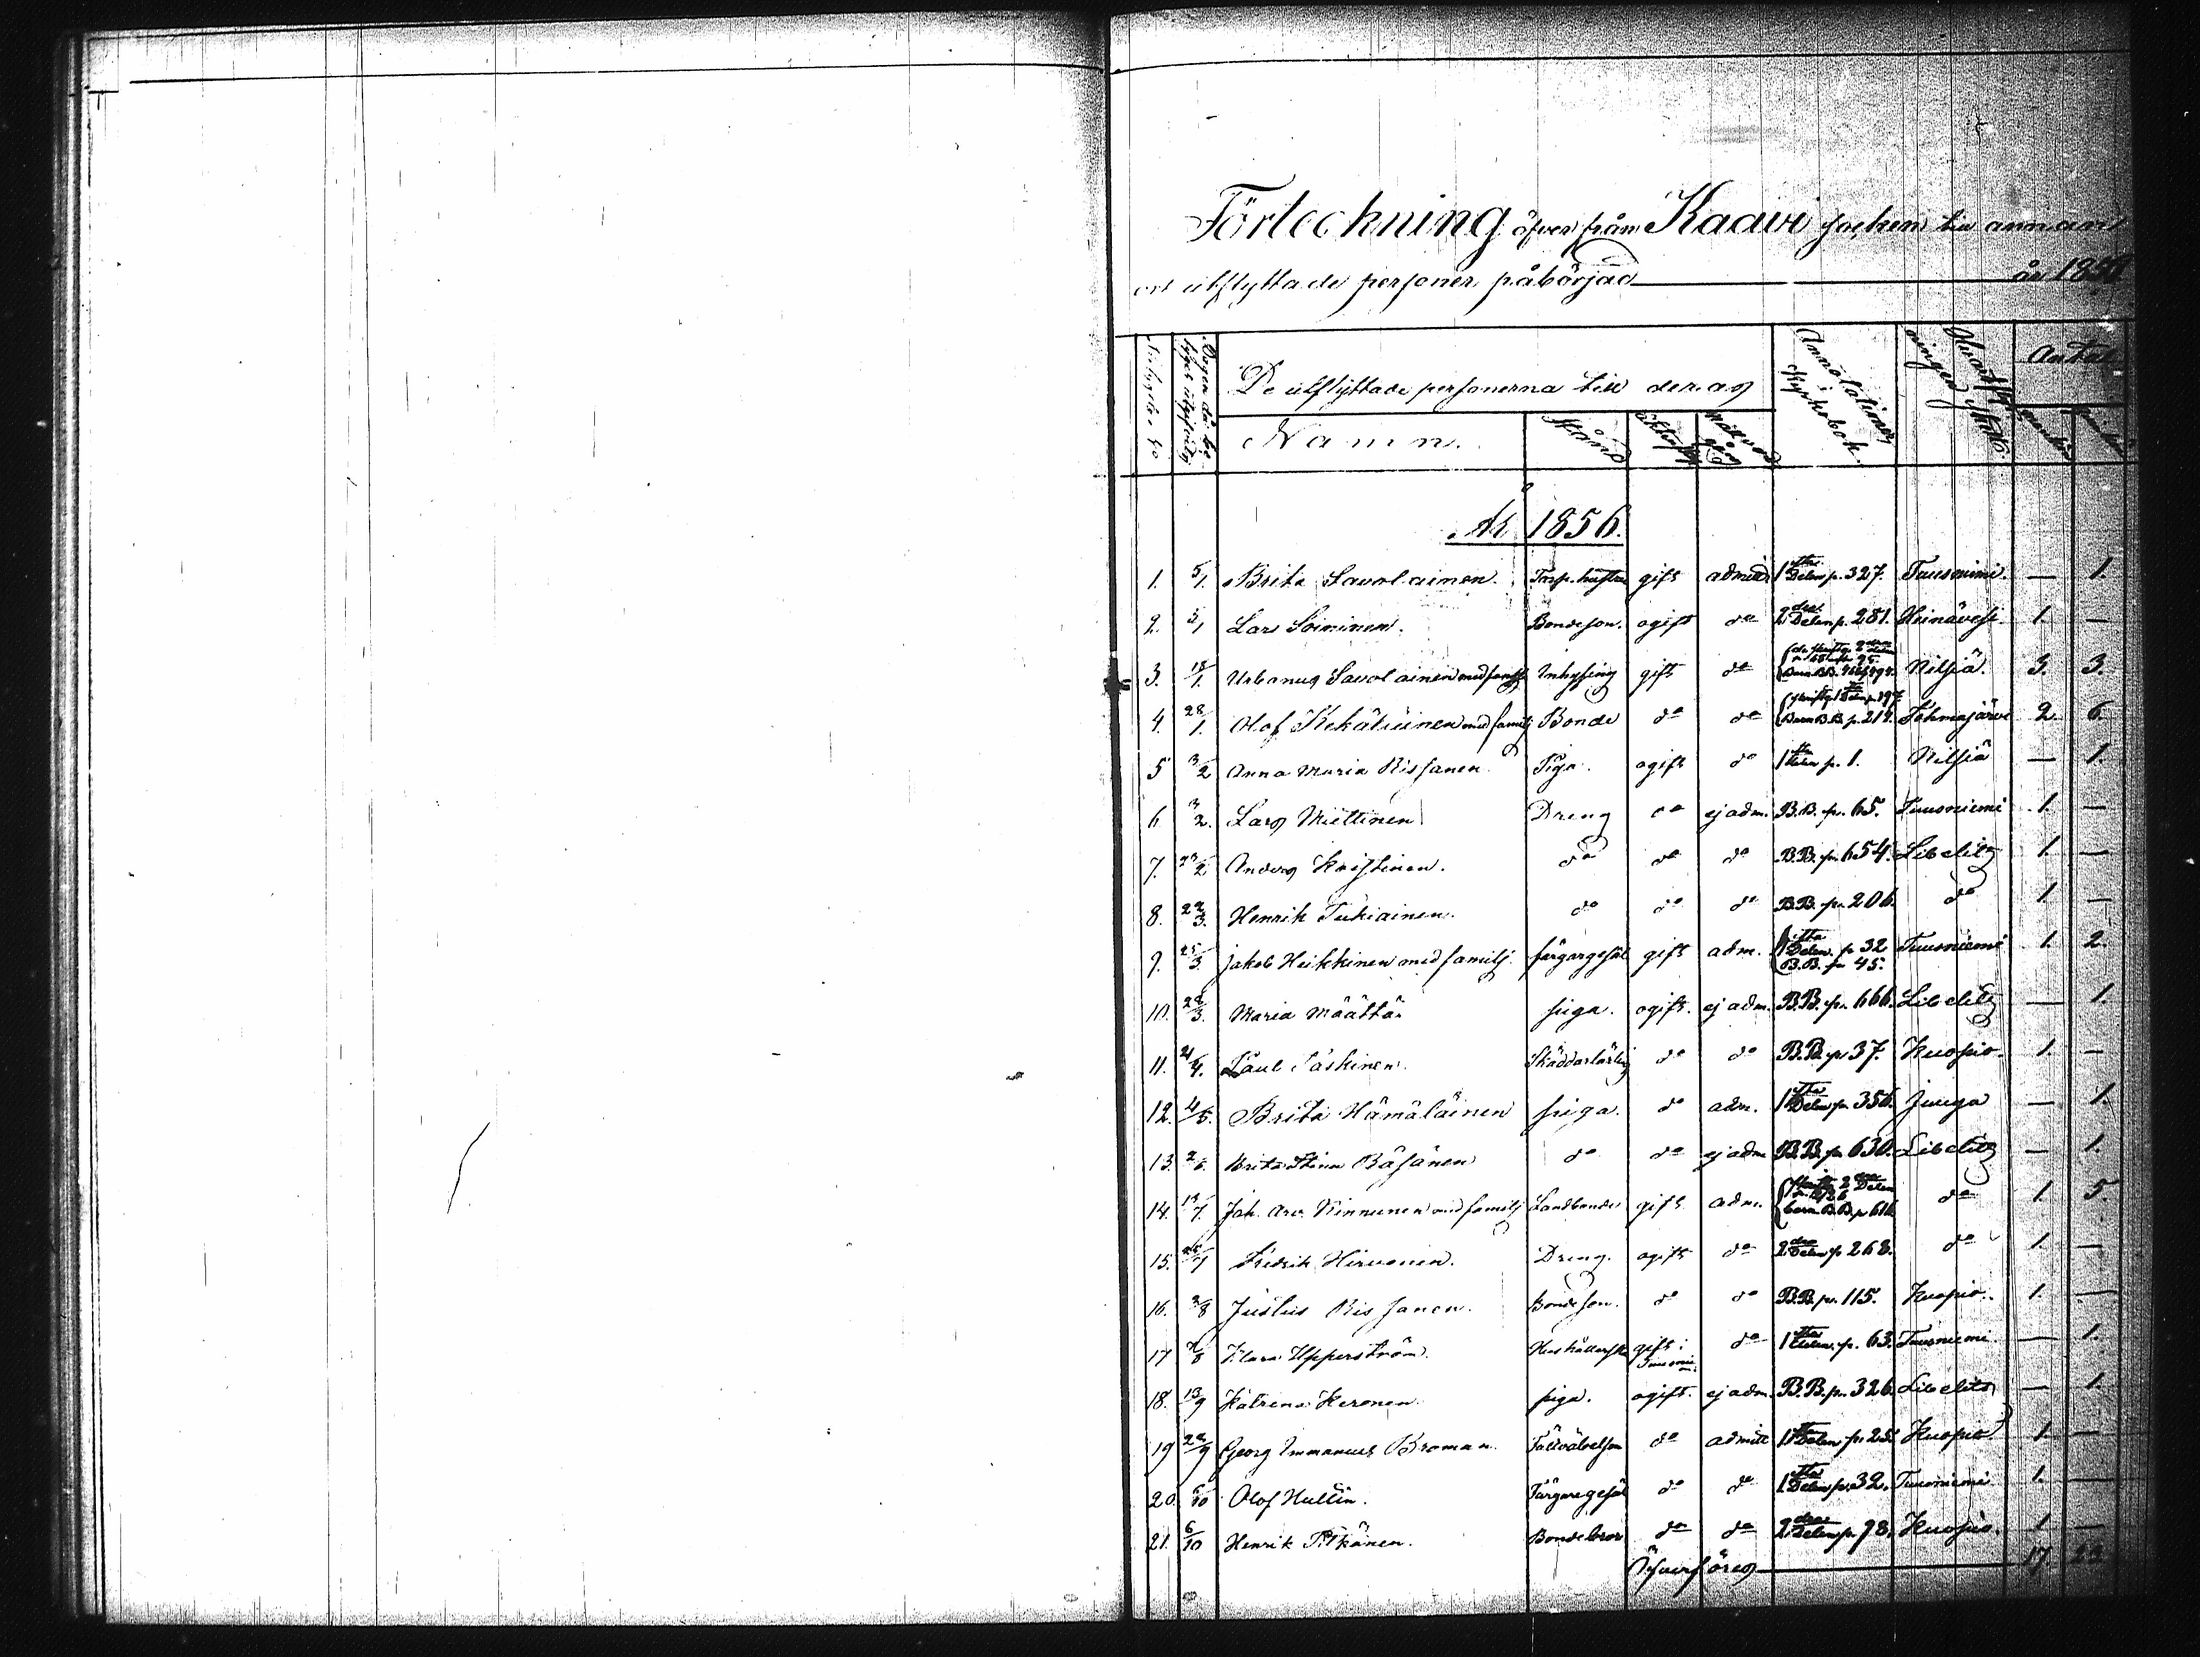 Förteckning öfver från Kaavi socken till annan
ort utflyttade personer påbörjad år 1856
De utflyttade personerna till deras
Annotationer i Kyrkobok.
Antal
Namn. Stånd
År 1856.
1. 5/1. Brita Savolainen. Torp.hustru gift admitt. 1sta Delen p. 327. Tuusniemi. — 1.
2. 5/1 Lars Soininen. Bondeson. ogift do 2dra Delen p. 281. Heinävesi. 1. —
3. 18/1. Urbanus Savolainen med familj Inhysing gift do Nilsiä. 3. 3.
4. 28/1. Olof Kekäläinen med familj Bonde do do Barn B.B. p. 219. Tohmajärvi 2. 6.
5 3/2 Anna Maria Rissanen. Piga. ogift do 1sta Delen p. 1. Nilsiä — 1.
6 3/2. Lars Miettinen Dreng do ej adm. B.B. p. 65. Tuusniemi 1. —
7. 23/2 Anders Kristinen. do do do B.B. p. 654. Libelitz 1. —
8. 22/3. Henrik Tukiainen. do do do B.B. p. 206. do 1 —
9. 25/3. Jakob Heikkinen med familj. färgargesäl gift adm. 1sta Delen p. 32 B.B. p. 45. Tuusniemi 1. 2.
10. 28/3. Maria Määttä piga. ogift. ej adm. B.B. p. 666. Libelitz — 1.
11. 21/4. Paul Paskinen. Skräddarlärling do do B.B. p. 37. Kuopio. 1. —
12. 4/5. Brita Hämäläinen piga. do adm. 1sta Delen p. 356. Juuga — 1.
13. 2/6. Brita Stina Räsänen do do ej adm B.B. p. 630. Libelitz — 1.
14. 13/7. Joh. Arv. Kinnunen med familj Landbonde gift adm. barn B.B. p. 616 do 1. 5.
15. 25/7 Fredrik Hirvonen. Dreng. ogift do 2dra Delen p. 268. do 1. —
16. 3/8 Justus Rissanen. Bondeson. do do B.B. p. 115. Kuopio. 1. —
17 7/8 Klara Upperström. Hushållerska gift i Tuusniemi do 1sta Delen p. 63. Tuusniemi. — 1.
18. 13/9 Katrina Keronen piga. ogift. ej adm. B.B. p. 326. Libelitz — 1.
19 22/9 Georg Immanuel Broman. do admitt 1sta Delen p. 25. Kuopio. 1. —
20. 5/10 Olof Hullin. Färgaregesäl do do 1sta Delen p. 32. Tuusniemi 1. —
21. 6/10 Henrik Pitkänen. Bondebror do do 2dra Delen p. 98. Kuopio. 1 —
Öfverföres 17. 22.